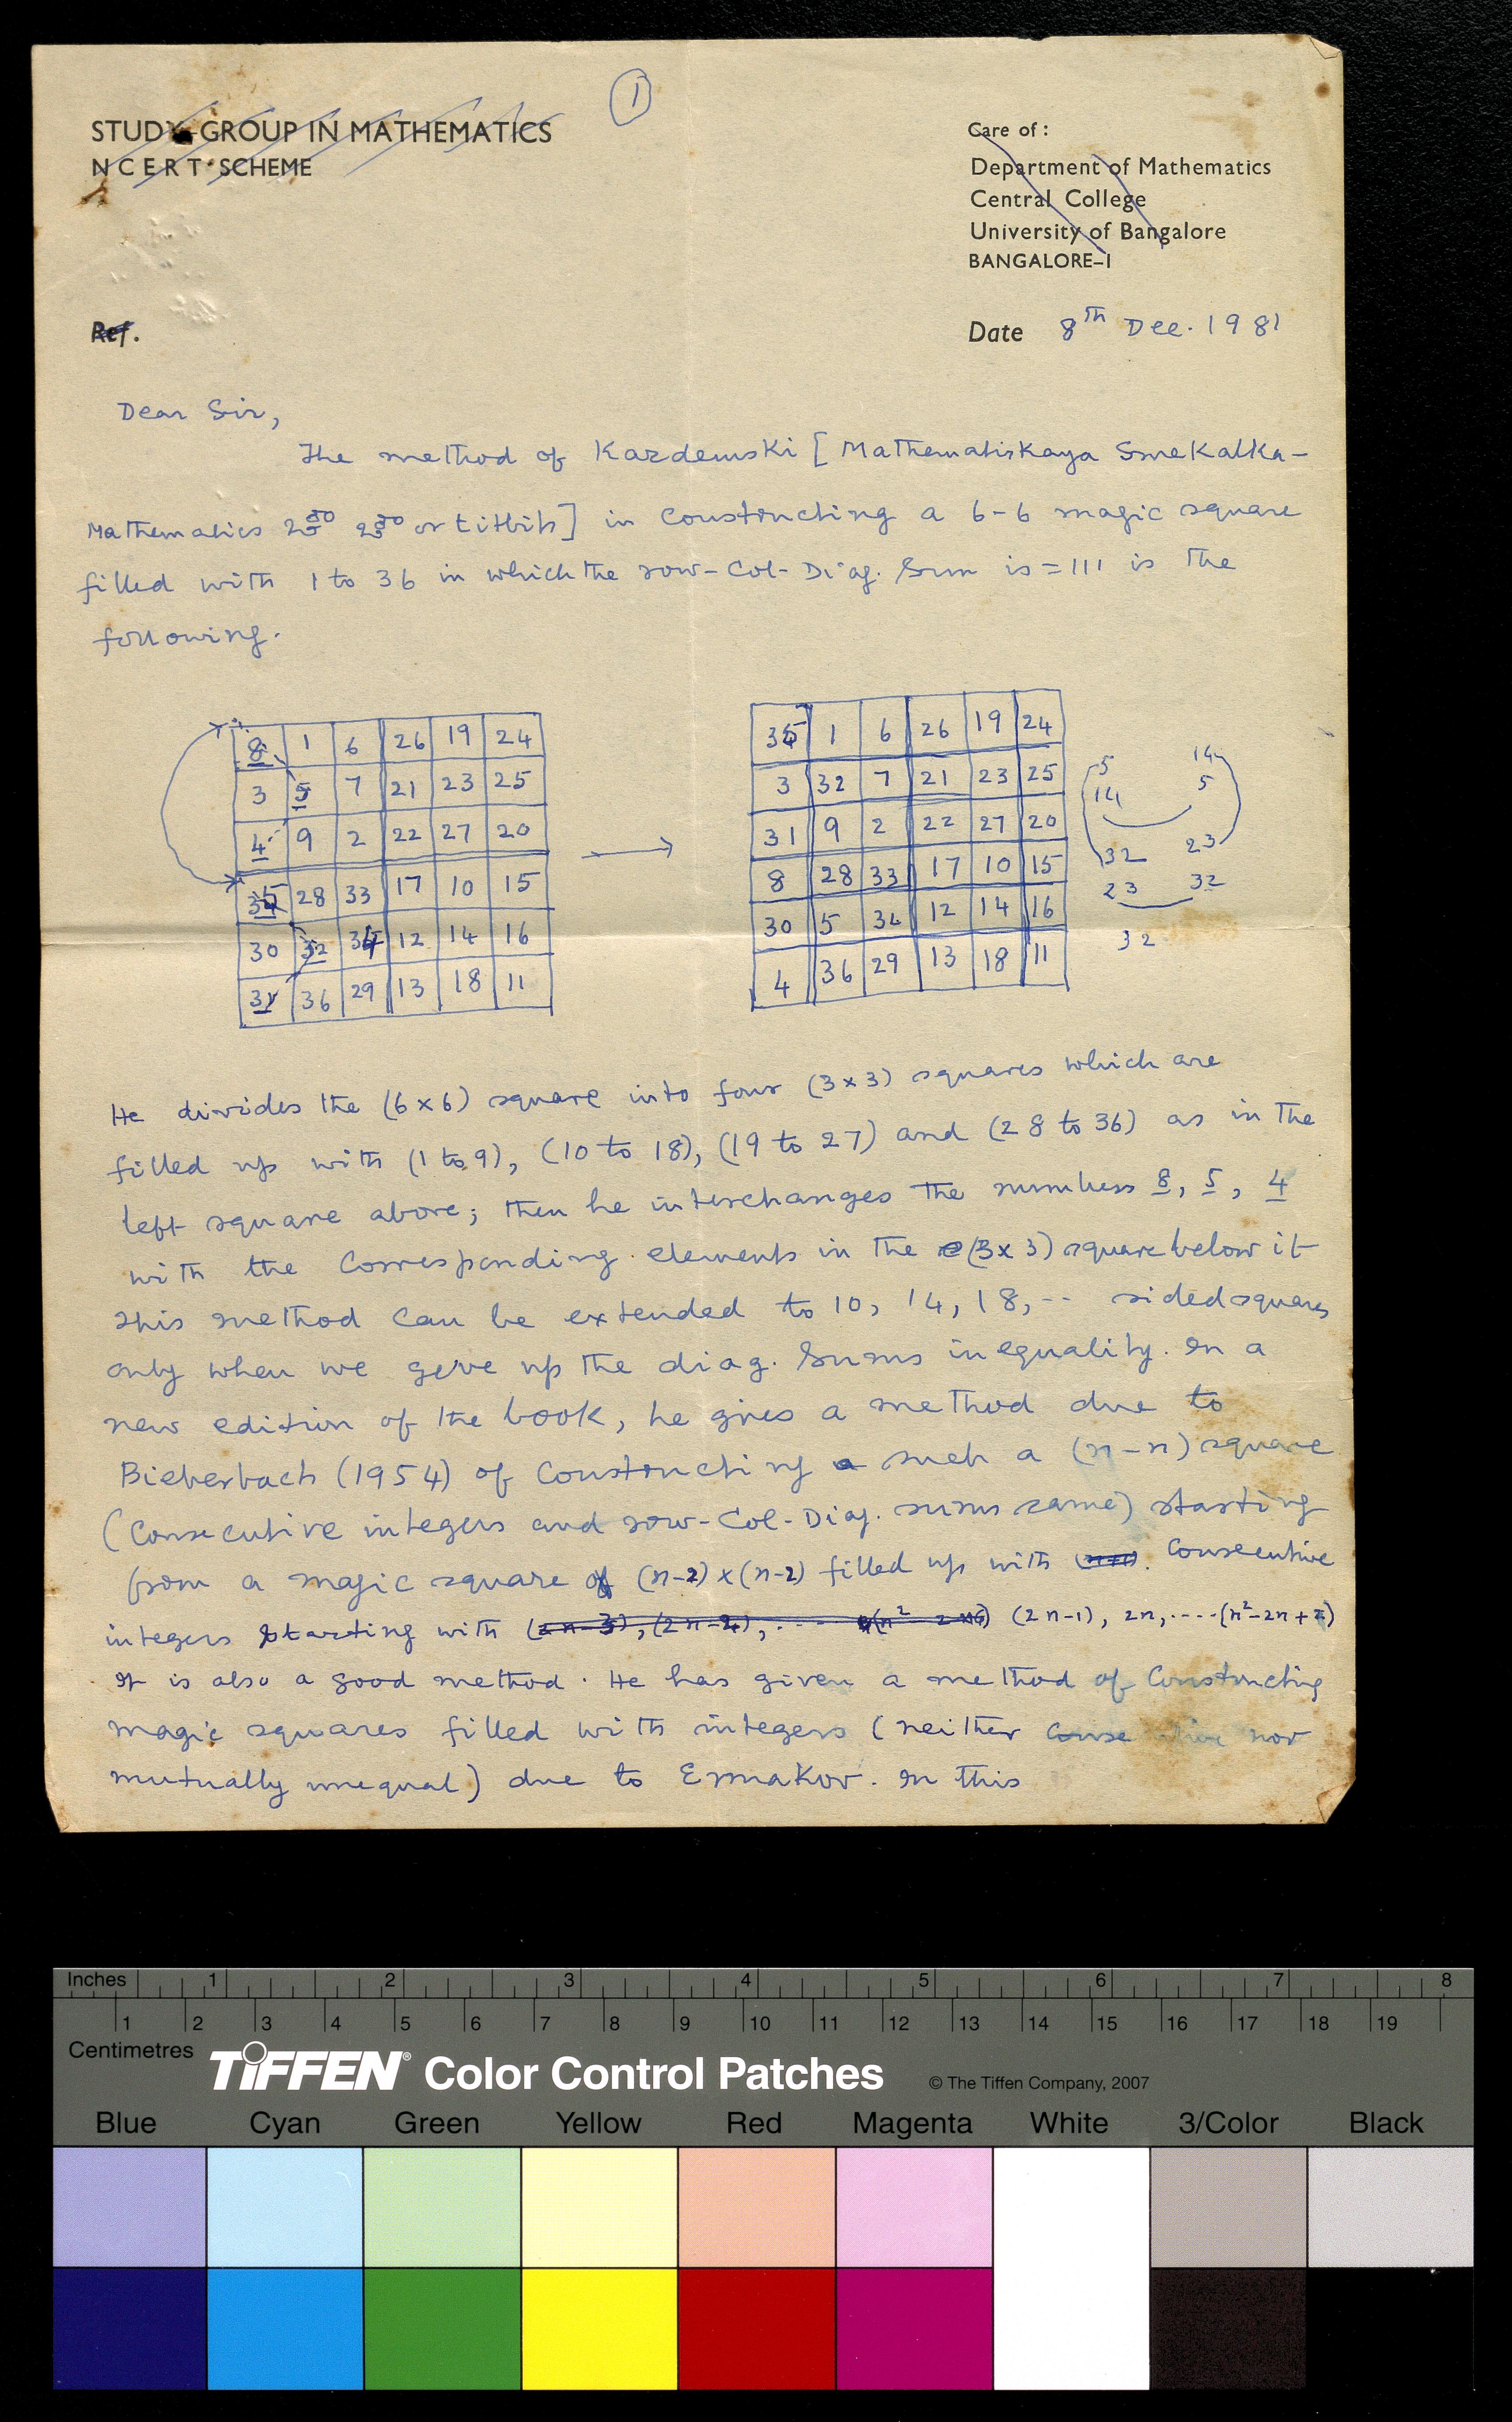 ①
STUDY GROUP IN MATHEMATICS
NCERT SCHEME
Care of :
Department of Mathematics
Central College
University of Bangalore
BANGALORE–1
Ref.
Date 8th Dec. 1981
Dear Sir,
The method of Kardemski [ Mathematiskaya Smekalka–
Mathematics or titbits] in constructing a 6-6 magic square
filled with 1 to 36 in which the row-Col-Diag. Sum is = 111 is the
following.
8 1 6 26 19 24
3 5 7 21 23 25
4 9 2 22 27 20
35 28 33 17 10 15
30 32 34 12 14 16
31 36 29 13 18 11
→
35 1 6 26 19 24
3 32 7 21 23 25
31 9 2 22 27 20
8 28 33 17 10 15
30 5 34 12 14 16
4 36 29 13 18 11
5 14
14 5
32 23
23 32
32
He divides the (6×6) square into four (3×3) squares which are
filled up with (1 to 9), (10 to 18), (19 to 27) and (28 to 36) as in the
left square above; then he interchanges the numbers 8, 5, 4
with the corresponding elements in the (3×3) square below it
This method can be extended to 10, 14, 18, -- sided squares
only when we give up the diag. Sums inequality. In a
new edition of the book, he gives a method due to
Bieberbach (1954) of constructing such a (n–n) square
(Consecutive integers and row-Col-Diag. sums same) starting
from a magic square of (n-2)×(n-2) filled up with Consecutive
integers starting with (2n-3), (2n-2), (2n-1), 2n, ---- (n²-2n+2)
It is also a good method. He has given a method of Constructing
magic squares filled with integers (neither nor
mutually unequal) due to Ermakov. In this
Inches 1 2 3 4 5 6 7 8
1 2 3 4 5 6 7 8 9 10 11 12 13 14 15 16 17 18 19
Centimetres
TIFFEN® Color Control Patches © The Tiffen Company, 2007
Blue Cyan Green Yellow Red Magenta White 3/Color Black